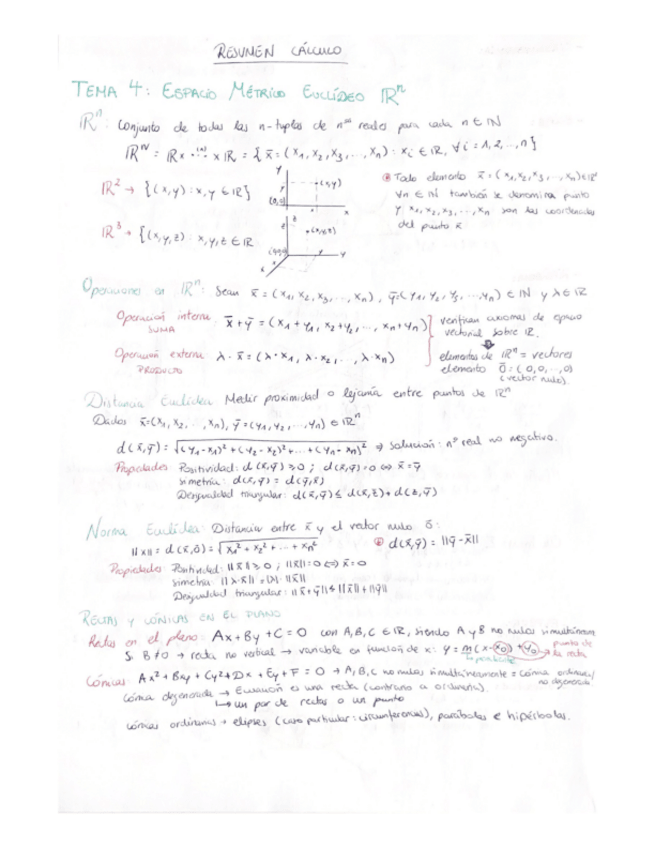 RESUMEN CÁLCULO
TEMA 4: ESPACIO MÉTRICO EUCLÍDEO ℝⁿ
ℝⁿ: Conjunto de todas las n-tuplas de nºs reales para cada n ∈ ℕ
ℝᴺ = ℝ× ..⁽ⁿ⁾.. ×ℝ = { x̄ = (x₁, x₂, x₃, ..., xₙ) : xᵢ ∈ ℝ, ∀ i = 1, 2, .., n }
ℝ² → {(x,y) : x, y ∈ ℝ}
y
(x,y)
(0,0)
x
Todo elemento x̄ = (x₁, x₂, x₃, ..., xₙ) ∈ ℝⁿ
∀n ∈ ℕ también se denomina punto
y x₁, x₂, x₃, ..., xₙ son las coordenadas
del punto x̄
ℝ³ → {(x,y,z) : x,y,z ∈ ℝ
z
(x,y,z)
y
x
Operaciones en ℝⁿ: Sean x̄ = (x₁, x₂, x₃, ..., xₙ), ȳ = (y₁, y₂, y₃, ..., yₙ) ∈ ℕ y λ ∈ ℝ
Operación interna x̄ + ȳ = (x₁ + y₁, x₂ + y₂, ..., xₙ + yₙ)
SUMA
verifican axiomas de espacio
vectorial sobre ℝ.
Operación externa λ · x̄ = (λ · x₁, λ · x₂, .., λ · xₙ)
PRODUCTO
elementos de ℝⁿ = vectores
elemento 0̄ = (0, 0, .., 0)
(vector nulo).
Distancia Euclídea: Medir proximidad o lejanía entre puntos de ℝⁿ
Dados x̄ = (x₁, x₂, ..., xₙ), ȳ = (y₁, y₂, ..., yₙ) ∈ ℝⁿ
d(x̄, ȳ) = √(y₁ - x₁)² + (y₂ - x₂)² + ... + (yₙ - xₙ)² ⇒ Solución: nº real no negativo.
Propiedades: Positividad: d(x̄,ȳ) ≥ 0 ; d(x̄,ȳ) = 0 ⇔ x̄ = ȳ
simetría: d(x̄,ȳ) = d(ȳ,x̄)
Desigualdad triangular: d(x̄,ȳ) ≤ d(x̄,z̄) + d(z̄,ȳ)
Norma Euclídea: Distancia entre x̄ y el vector nulo 0̄:
||x|| = d(x̄,0̄) = √x₁² + x₂² + ... + xₙ²
d(x̄,ȳ) = ||ȳ - x̄||
Propiedades: Positividad: ||x̄|| ≥ 0 ; ||x̄|| = 0 ⇔ x̄ = 0
simetría: ||λ·x̄|| = |λ| · ||x̄||
Desigualdad triangular: ||x̄ + ȳ|| ≤ ||x̄|| + ||ȳ||
RECTAS Y CÓNICAS EN EL PLANO
Rectas en el plano: Ax + By + C = 0 con A, B, C ∈ ℝ, siendo A y B no nulos simultáneam
Si B ≠ 0 → recta no vertical → variable en función de x: y = m(x - x₀) + y₀
pendiente
punto de
la recta
Cónicas: Ax² + Bxy + Cy² + Dx + Ey + F = 0 → A, B, C no nulos simultáneamente = cónica ordinaria/
no degenerada
cónica degenerada → Ecuación es una recta (contrario a ordinaria).
↳ un par de rectas o un punto
cónicas ordinarias → elipses (caso particular: circunferencias), parábolas e hipérbolas.